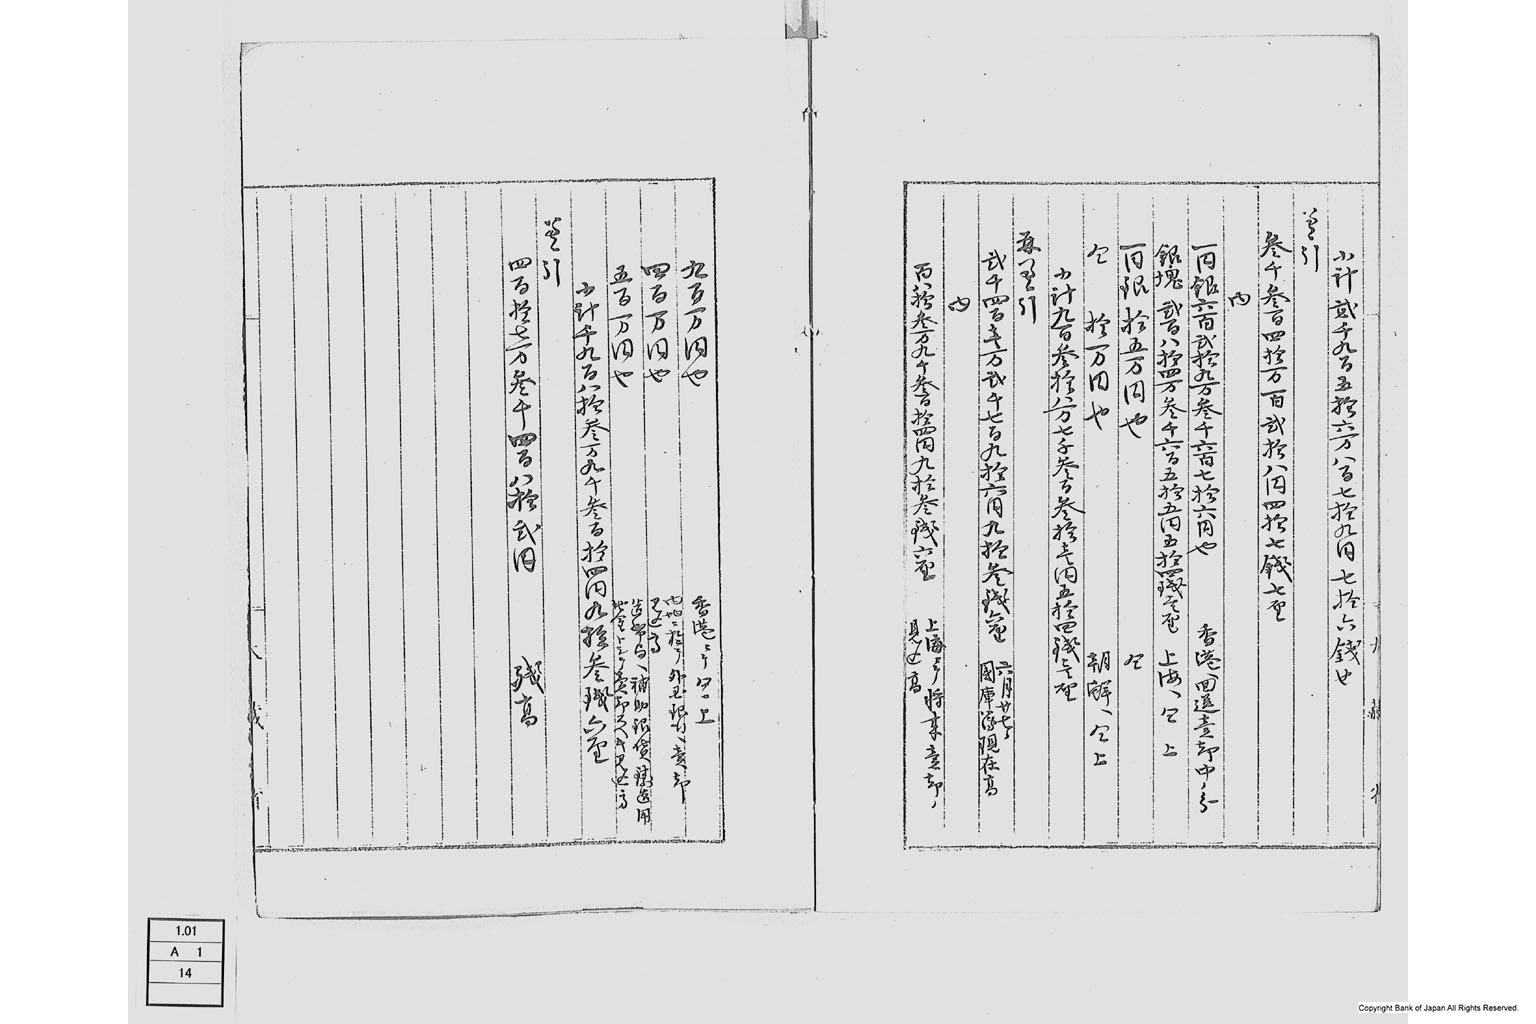 小計弐千九百五拾六万八百七拾九円七拾六銭也
差引
参千参百四拾万百弐拾八円四拾七銭七厘
内
一円銀六百弐拾九万参千六百七拾六円也 香港ヘ回送売却中ノ分
銀塊弐百八拾四万参千六百五拾五円五拾四銭壱厘 上海ヘ仝上
一円銀拾五万円也 仝
仝 拾万円也 朝鮮ヘ仝上
小計九百参拾八万七千参百参拾壱円五拾四銭壱厘
再差引
弐千四百壱万弐千七百九拾六円九拾参銭六厘 六月廿七日
国庫現在高
内
百八拾参万九千参百拾四円九拾参銭六厘 上海ニテ将来売却ノ
見込高
九百万円也 香港ニテ仝上
四百万円也 内地ニ於テ外国銀行ヘ売却
見込高
五百万円也 造幣局ヘ補助銀貨鋳造用
地金トシテ売却スヘキ見込高
小計千九百八拾参万九千参百拾四円九拾参銭六厘
差引
四百拾七万参千四百八拾弐円 残高
大蔵省
1.01
A 1
14
Copyright Bank of Japan All Rights Reserved.